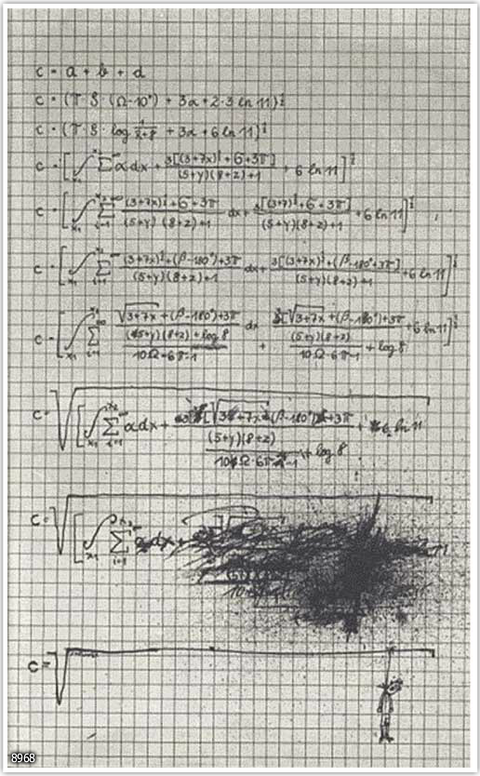 c = a + b + d
c = (π·S·(Ω-10°) + 3α + 2·3 ln 11)^½
c = (π·S·log + 3α + 6 ln 11)^½
c = [∫ x₁ x₂ ∑ α dx + 3[(3+7x)^½ + 6 + 3π] / (5+y)(8+z)+1 + 6 ln 11]^½
c = [∫ x₁ x₂ ∑ i=1 ∞ (3+7x)^½ + 6 + 3π / (5+y)(8+z)+1 dx + 3[(3+7)^½ + 6 + 3π] / (5+y)(8+z)+1 + 6 ln 11]^½
c = [∫ x₁ x₂ ∑ i=1 ∞ (3+7x)^½ + (β-180°)+3π / (5+y)(8+z)+1 dx + 3[(3+7x)^½ + (β-180°+3π] / (5+y)(8+z)+1 + 6 ln 11]^½
c = [∫ x₁ x₂ ∑ i=1 ∞ √3+7x + (β-180°)+3π / (5+y)(8+z) / 10Ω·6π-1 + log 8 dx + 3[√3+7x + (β-180°)+3π / (5+y)(8+z) / 10Ω·6π-1 + log 8 + 6 ln 11]^½
c = √[∫ x₁ x₂ ∑ i=1 ∞ α dx + √3+7x + (β-180°) + 3π / (5+y)(8+z) / 10Ω·6π-1 + log 8 + 6 ln 11
c = √[∫ x₁ x₂ ∑ i=1 ∞ dx +
c = √
8968